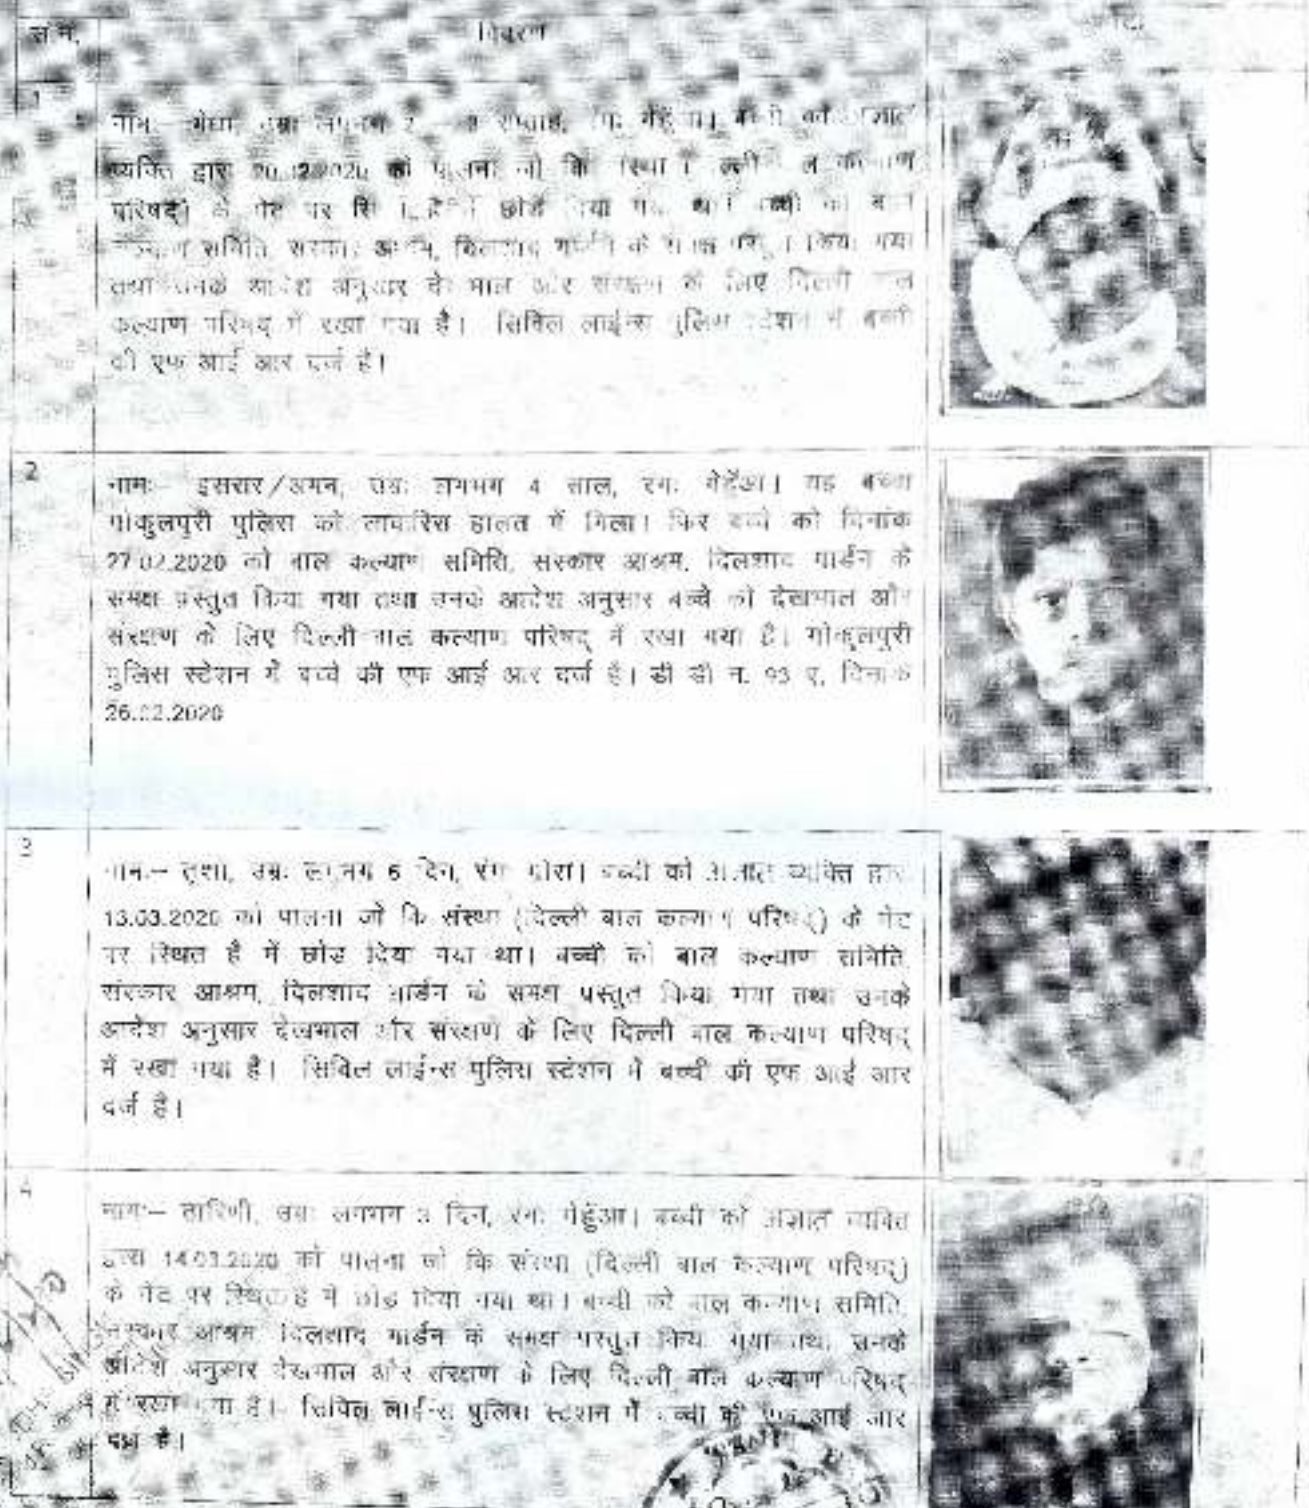 स.न. विवरण
1
नामः– मेघा, उम्रः लगभग 2 सप्ताह, रंगः बच्ची को अज्ञात
व्यक्ति द्वारा 20.02.2020 को पालना जो कि कल्याण
परिषद्) के गेट पर छोड दिया गया था। बच्ची को बाल
कल्याण समिति, संस्कार आश्रम, दिलशाद गार्डन के समक्ष किया गया
तथा उनके आदेश अनुसार देखभाल और संरक्षण के लिए दिल्ली बाल
कल्याण परिषद् में रखा गया है। सिविल लाईन्स पुलिस स्टेशन में बच्ची
की एफ आई आर दर्ज है।
2
नामः– इसरार/अमन, उम्रः लगभग 4 साल, रंगः गेहुँआ। यह बच्चा
गोकुलपुरी पुलिस को लावारिस हालत में मिला। फिर बच्चे को दिनांक
27.02.2020 को बाल कल्याण समिति, संस्कार आश्रम, दिलशाद गार्डन के
समक्ष प्रस्तुत किया गया तथा उनके आदेश अनुसार बच्चे को देखभाल और
संरक्षण के लिए दिल्ली बाल कल्याण परिषद् में रखा गया है। गोकुलपुरी
पुलिस स्टेशन में बच्चे की एफ आई आर दर्ज है। डी डी न. 93 ए, दिनांक
26.02.2020
3
नामः– तृशा, उम्रः लगभग 6 दिन, रंगः गोरा। बच्ची को अज्ञात व्यक्ति द्वारा
13.03.2020 को पालना जो कि संस्था (दिल्ली बाल कल्याण परिषद्) के गेट
पर स्थित है में छोड दिया गया था। बच्ची को बाल कल्याण समिति,
संस्कार आश्रम, दिलशाद गार्डन के समक्ष प्रस्तुत किया गया तथा उनके
आदेश अनुसार देखभाल और संरक्षण के लिए दिल्ली बाल कल्याण परिषद्
में रखा गया है। सिविल लाईन्स पुलिस स्टेशन में बच्ची की एफ आई आर
दर्ज है।
4
नामः– तारिणी, उम्रः लगभग 3 दिन, रंगः गेहुंआ। बच्ची को अज्ञात व्यक्ति
द्वारा 14.03.2020 को पालना जो कि संस्था (दिल्ली बाल कल्याण परिषद्)
के गेट पर स्थित है में छोड दिया गया था। बच्ची को बाल कल्याण समिति,
संस्कार आश्रम, दिलशाद गार्डन के समक्ष प्रस्तुत किया गया तथा उनके
आदेश अनुसार देखभाल और संरक्षण के लिए दिल्ली बाल कल्याण परिषद्
में रखा गया है। सिविल लाईन्स पुलिस स्टेशन में बच्ची की एफ आई आर
दर्ज है।